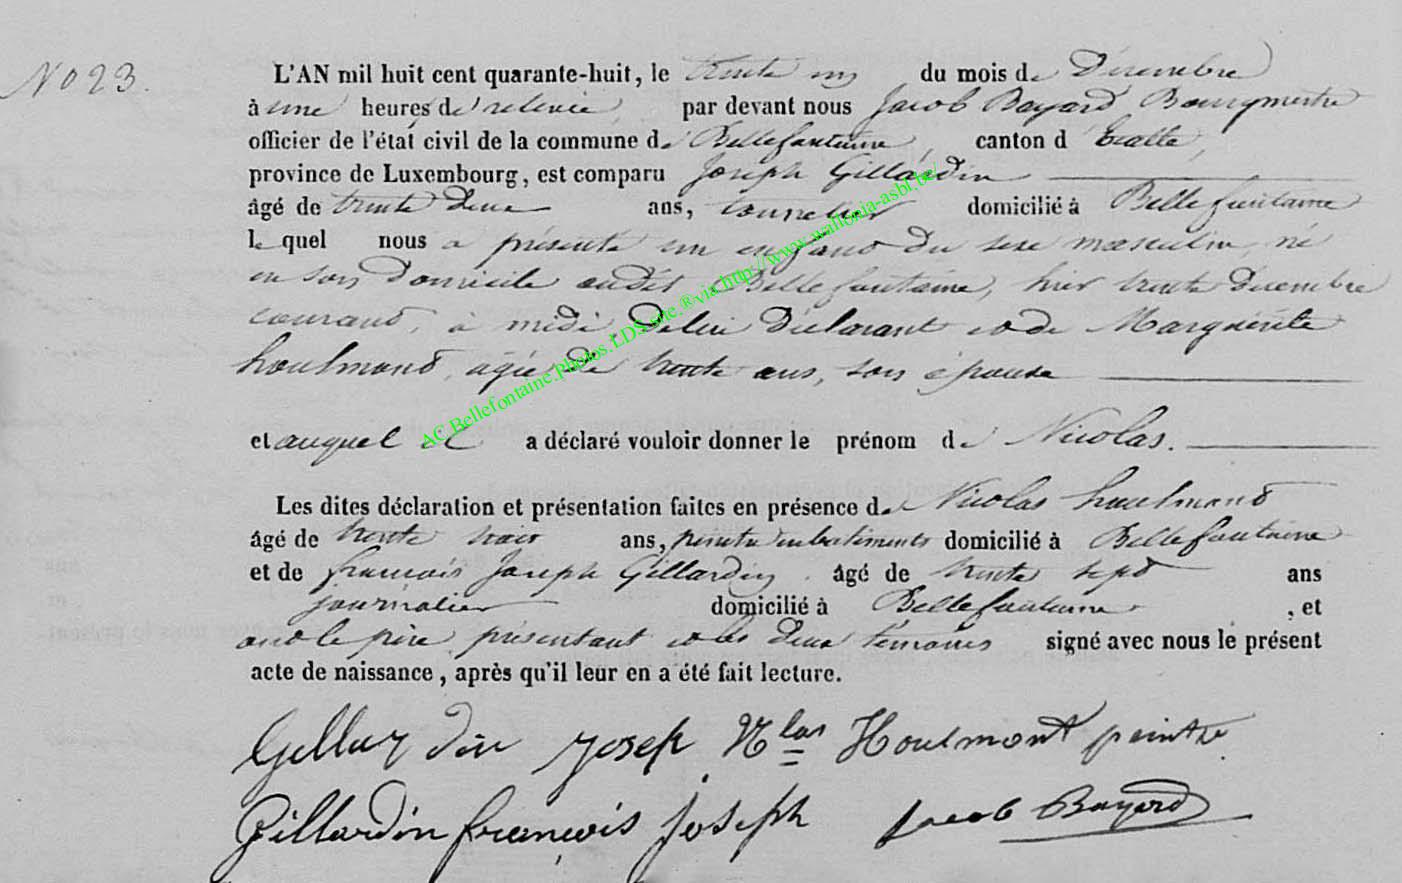 No 23.
L'AN mil huit cent quarante-huit, le trente un du mois de Décembre
à une heures de relevée, par devant nous Jacob Bayard Bourgmestre
officier de l'état civil de la commune de Bellefontaine, canton d'Etalle,
province de Luxembourg, est comparu Joseph Gillardin
âgé de trente deux ans, tonnelier domicilié à Bellefontaine
le quel nous a présenté un enfant du sexe masculin, né
en son domicile audit Bellefontaine, hier trente décembre
courant, à midi, de lui déclarant et de Marguerite
houlmont, agée de trente ans, son épouse
et auquel il a déclaré vouloir donner le prénom de Nicolas.
Les dites déclaration et présentation faites en présence de Nicolas houlmont
âgé de trente trois ans, peintre en batiments domicilié à Bellefontaine
et de françois Joseph Gillardin âgé de trente sept ans
journalier domicilié à Bellefontaine, et
ont le père présentant et les deux témoins signé avec nous le présent
acte de naissance, après qu'il leur en a été fait lecture.
Gillardin Josep Nlas Houlmont peintre
Gillardin françois Joseph Jacob Bayard
AC.Bellefontaine.Photos.LDS.site.®via http://www.wallonia-asbl.be/